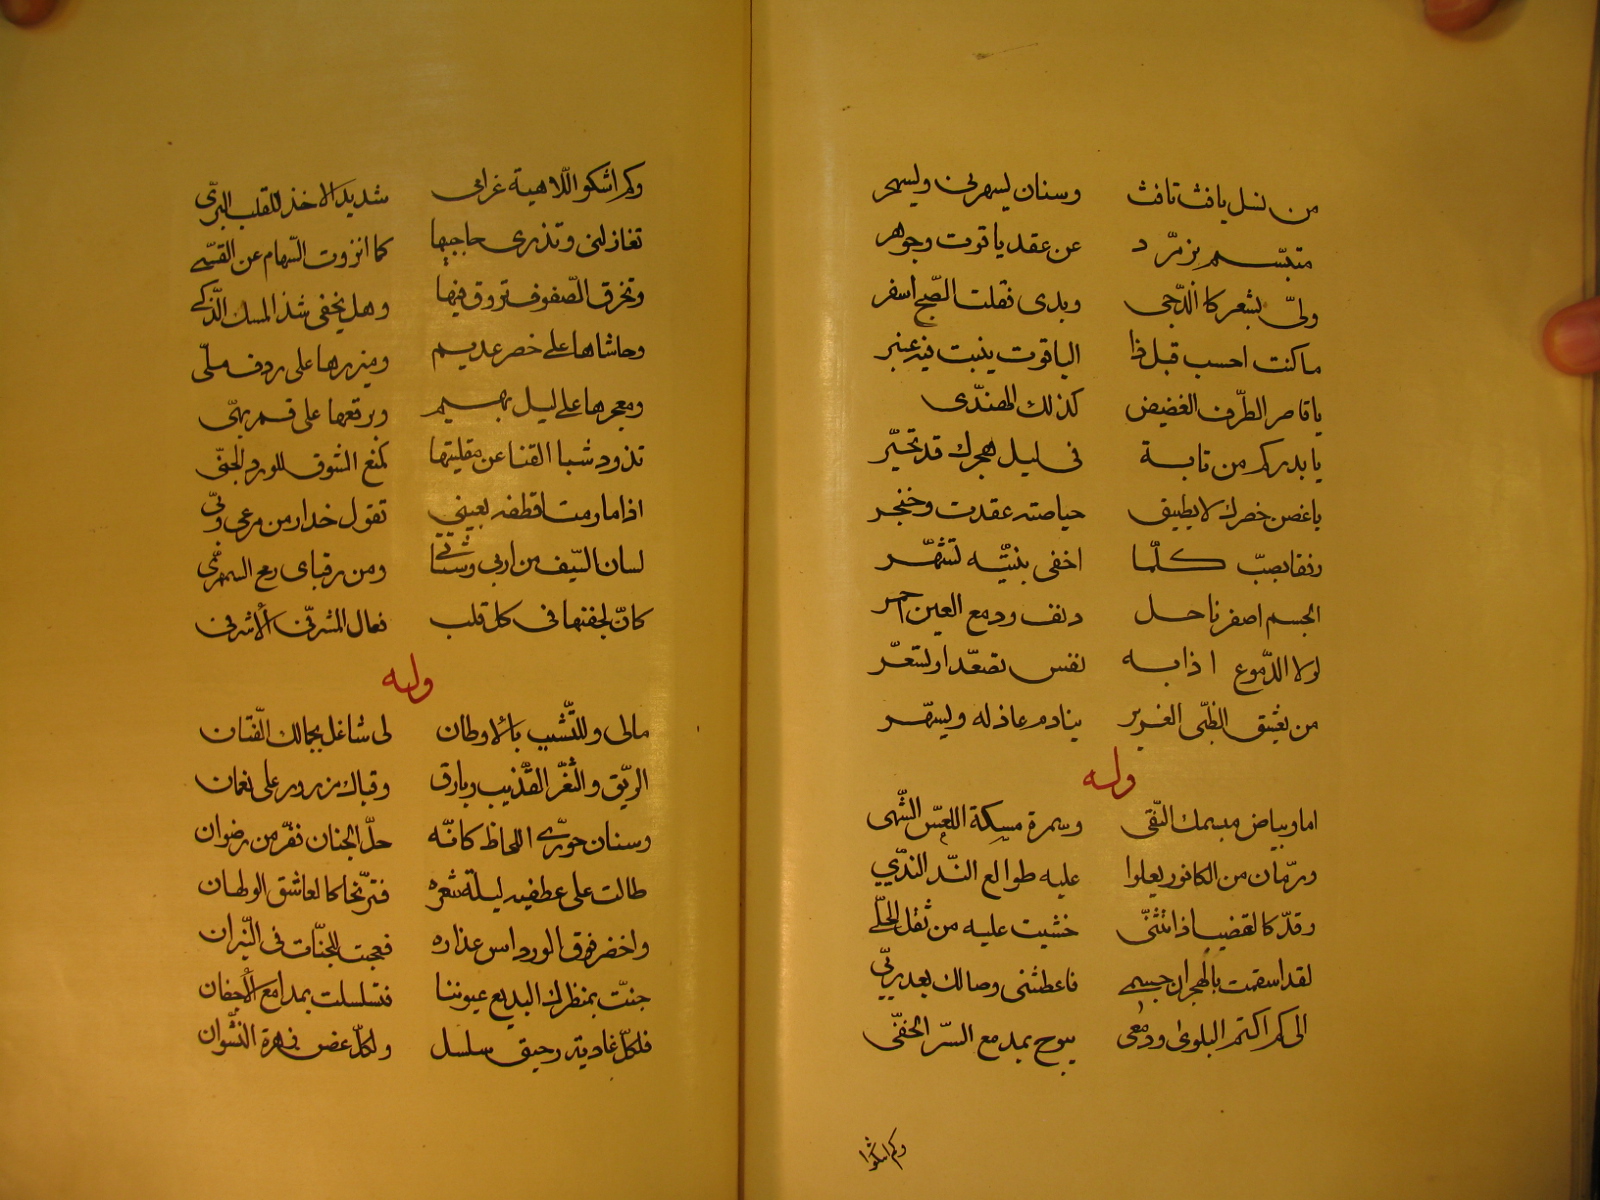 من نسل يافث تافث وسنان يسهرنى ويسحر
متبسم بزمرد عن عقد ياقوت وجوهر
ولى بشعر كالدجى وبدى فقلت الصبح اسفر
ماكنت احسب قبل ذا الياقوت ينبت فيه عنبر
يا قاصر الطرف الغضيض كذلك المهندى
يا بدركم من تايه فى ليل هجرك قد تحير
ياغصن خصرك لا يطيق حياصته عقدت وخنجر
رفقا بصب كلما اخفى بنيته تشهر
الجسم اصفر ناحل دنف ودمع العين احمر
لولا الدموع اذابه نفس تصعد او تسعر
من يعشق الظبى الغرير ينادم عاذله ويسهر
وله
اما وبياض مبسمك النقى وسمرة مسكة اللعس الشهى
ورمان من الكافور يعلوا عليه طوالع الند الندى
وقد كالقضيب اذا تثنى خشيت عليه من ثقل الحلى
لقد اسقمت بالهجران جسمى فاعطشنى وصالك بعد ريى
الى كم اكتم البلوى ودمعى يبوح بمدمع السر الخفى
وكم اشكوا
وكم اشكو اللاهية غرامى شديد الاخذ للقلب البرى
تغازلنى وتذرى حاجبها كما انزوت السهام عن القسى
وتخرق الصفوف تروق فيها وهل يخفى شذ المسك الذكى
وحاشاها على خصر عديم وميزرها على ردف ملى
ومعجرها على ليل بهيم وبرقعها على قمر بهى
تذود شبا القنا عن مقلتيها كمنع الشوق للورد الجنى
اذا مارمت اقطفه بعينى تقول حذار من مرعى وبى
لسان السيف من اربى وشتى ومن رقباى رمح السمهرى
كان لجفنها فى كل قلب فعال المشرفى الاشرفى
وله
مالى وللتشبب بالاوطان لى شاغل بجمالك الفتان
الريق والثغر القذيب وبارق وقباك مزرور على نعمان
وسنان حورى اللحاظ كانه حل الجنان ففر من رضوان
طالت على عطفيه ليلة شعره فترنحا كالعاشق الولهان
واخضر فوق الورد اس عذاره فعجبت للجنات فى النيران
جنت بمنظرك البديع عيوننا فتسلسلت بمدامع الاجفان
فلكل غادية رحيق سلسل ولكل غض هزة النشوان